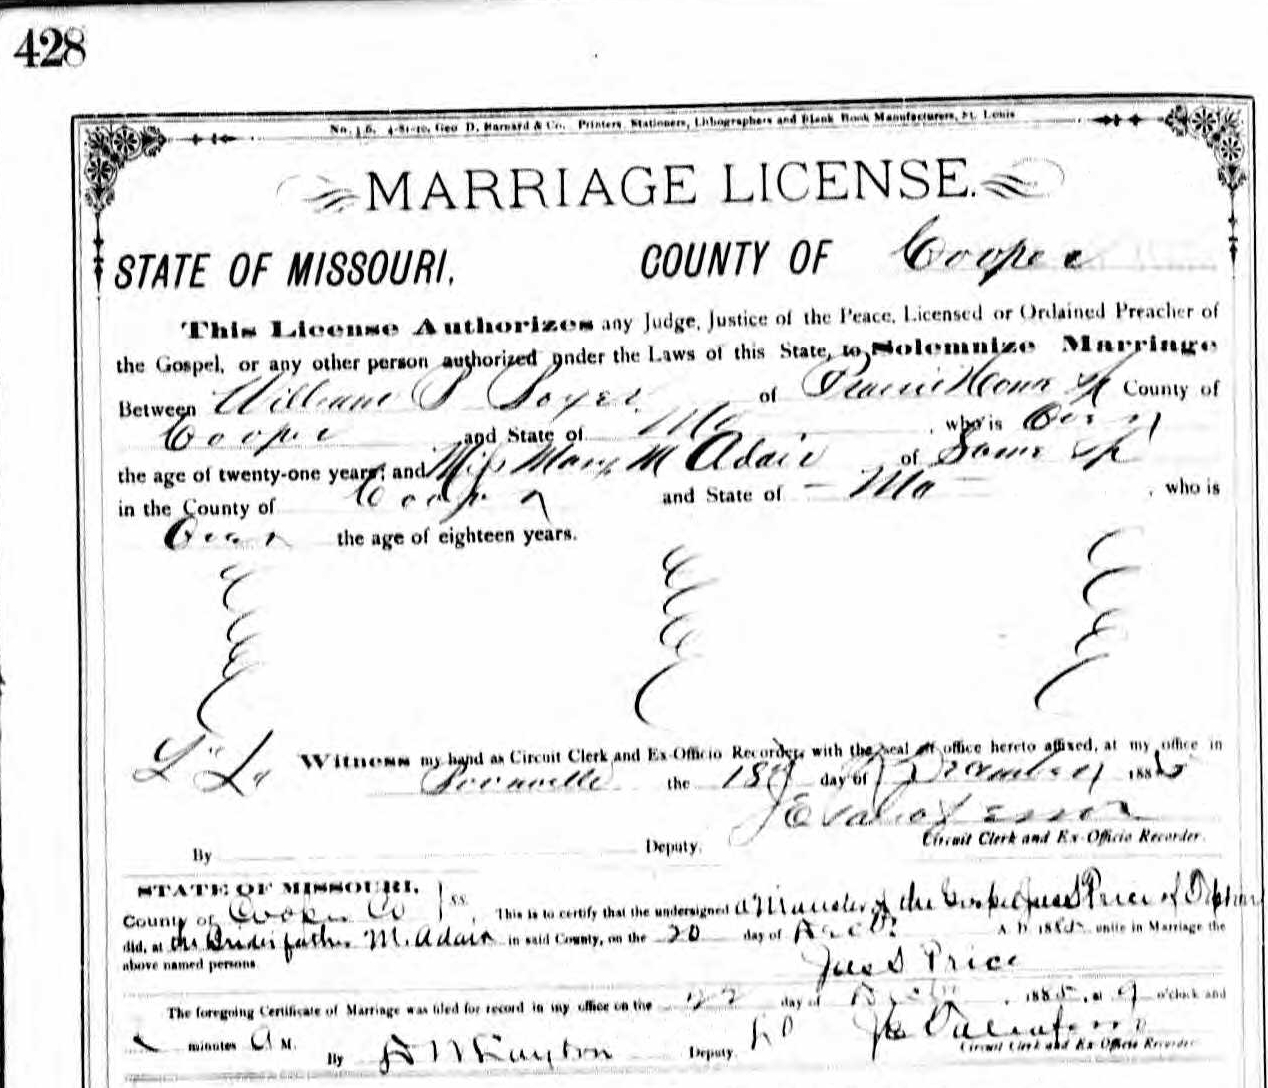 428
Geo D. Barnard & Co. Printers, Stationers, Lithographers and Blank Book Manufacturers, St. Louis
MARRIAGE LICENSE.
STATE OF MISSOURI, COUNTY OF Cooper
This License Authorizes any Judge, Justice of the Peace, Licensed or Ordained Preacher of
the Gospel, or any other person authorized under the Laws of this State, to Solemnize Marriage
Between William P of Prairie Home County of
Cooper and State of Mo , who is Over
the age of twenty-one years; and Miss Mary M Adair of Same
in the County of Cooper and State of - Mo - , who is
Over the age of eighteen years.
Witness my hand as Circuit Clerk and Ex-Officio Recorder, with the seal of office hereto affixed, at my office in
Boonville the 18 day of December 1885
Circuit Clerk and Ex-Officio Recorder.
By Deputy.
STATE OF MISSOURI,
County of Cooper Co ss. This is to certify that the undersigned a Minister of the Gospel Jas S Price of
did, at the Brides father M. Adair in said County, on the 20 day of Dec A. D. 1885 unite in Marriage the
above named persons.
Jas S Price
The foregoing Certificate of Marriage was filed for record in my office on the 22 day of , 1885, at 9 o'clock and
minutes A M.
By Deputy. Circuit Clerk and Ex Officio Recorder